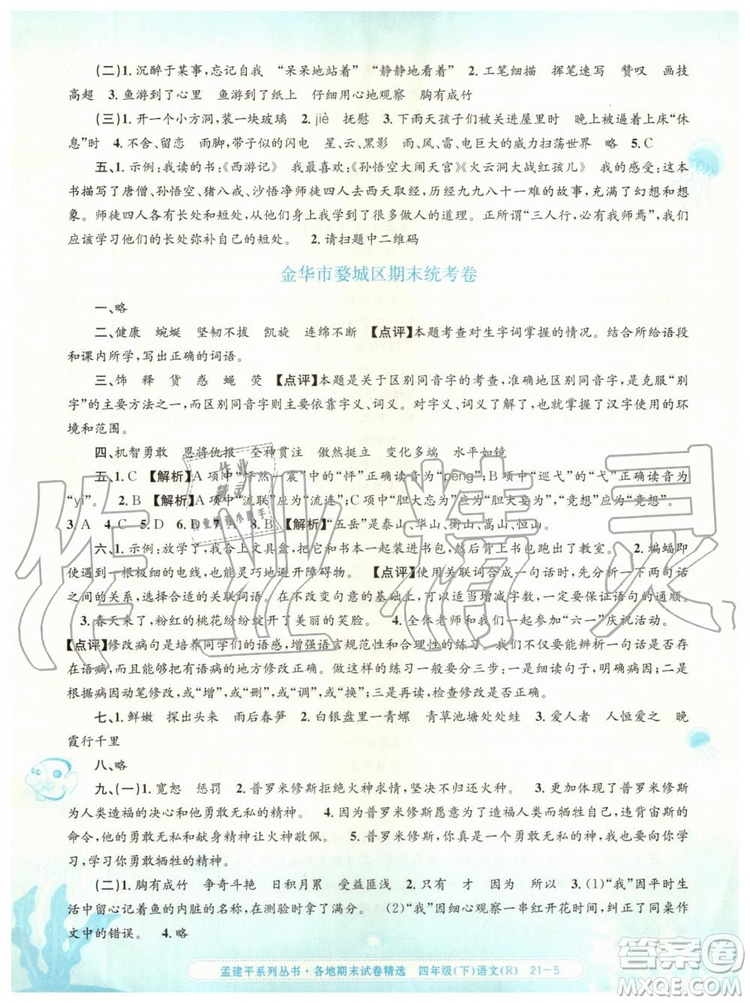 (二)1. 沉醉于某事，忘记自我 “呆呆地站着” “静静地看着” 2. 工笔细描 挥笔速写 赞叹 画技
高超 3. 鱼游到了心里 鱼游到了纸上 仔细用心地观察 胸有成竹
(三)1. 开一个小方洞，装一块玻璃 2. jiè 抚慰 3. 下雨天孩子们被关进屋里 晚上被迫上床去“休
息”时 4. 不舍、留恋 雨脚，带子似的闪电 星、云、黑影 雨、雷、电巨大的威力扫荡世界 略 5. C
五、1. 示例：我读的书：《西游记》 我最喜欢：《孙悟空大闹天宫》《火云洞大战红孩儿》 我觉得：这本
书描写了唐僧、孙悟空、猪八戒、沙悟净师徒四人取经，历经九九八十一难的故事，充满了幻想和想
象。师徒四人各有长处和短处，让我明白了很多做人的道理。正所谓“三人行，必有我师焉”，我们
应该学习他们的长处弥补自己的短处。 2. 请扫题中二维码
金华市婺城区期末统考卷
一、略
二、健康 蜿蜒 坚韧不拔 凯旋 连绵不断 【点评】本题考查对生字词掌握的情况。结合所给语段
和课内所学，写出正确的词语。
三、饰 释 货 惑 蝇 荧 【点评】本题是关于区别同音字的考查，解题时，避免出现“别
字”的主要方法之一，而区别同音字的主要方法就是依据字义、词义。同时掌握了汉字使用的环
境和范围。
四、机智勇敢 恩将仇报 全神贯注 傲然挺立 变化多端 水平如镜
五、1. C 【解析】A项中“怦然一震”中的“怦”正确读音为“pēng”；B项中“巡弋”的“弋”正确读音为
“yì”。 2. B 【解析】A项中“流联”应为“流连”；C项中“胆大忘为”应为“胆大妄为”，“竟想”应为“竞想”。
3. A 4. C 5. D 6. D 7. A 8. B 【解析】“五岳”是泰山、华山、衡山、嵩山、恒山。
六、1. 示例：放学了，我合上文具盒，收拾好书包，高高兴兴地跑出了教室。 2. 蝙蝠即
使遇到一根极细的电线，也能灵巧地避开障碍物。 【点评】使用关联词合成一句话时，先分析一下两句话
之间的关系，选择合适的关联词语，在不改变句意的基础上，可以对原句作相应的改动，使句子通顺。
3. 春天来了，粉红的桃花纷纷绽开了美丽的笑脸。 4. 全体老师和我们一起参加“六一”庆祝活动。
【点评】修改病句是培养同学们的分析能力，增强语言规范性和合理性的练习。我们不但要能辨析一句话是否
存在语病，而且还要能把有语病的地方修改正确。修改病句一般要分三步：一是细读句子，
二是因句动笔修改，或“增”，或“删”，或“调”，或“换”；三是对照原题，检查修改是否正确。
七、1. 鲜嫩 探出头来 雨后春笋 2. 白银盘里一青螺 青草池塘处处蛙 3. 爱人者 人恒爱之 晚
霞行千里
八、略
九、(一)1. 宽恕 惩罚 2. 普罗米修斯拒绝火神求情，坚决不归还火种。 3. 更加体现了普罗米修斯
为人类造福的决心和他勇敢无私的精神。 4. 普罗米修斯为了造福人类自己承受痛苦，不惜违背宙斯的
命令，他的勇敢无私的精神和献身精神让火神敬佩。 5. 普罗米修斯是一个勇敢无私的神，我要向他学
习，学习他勇敢牺牲的精神。
(二)1. 胸有成竹 争奇斗艳 日积月累 受益匪浅 2. 只有 才 因为 所以 3. (1)“我”因平时生
活中留心记着鱼的内脏的名称，在测验时拿到了满分。 (2)“我”因细心观察一串红开花时间，纠正了同桌作
文中的错误。 4. 略
孟建平系列丛书·各地期末试卷精选 四年级(下)语文(R) 21－5
作业精灵
作业
精灵
答案圈
MXQE.COM